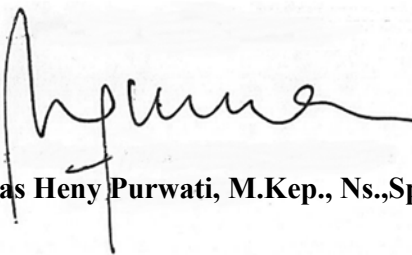 as Heny Purwati, M.Kep., Ns.,Sp